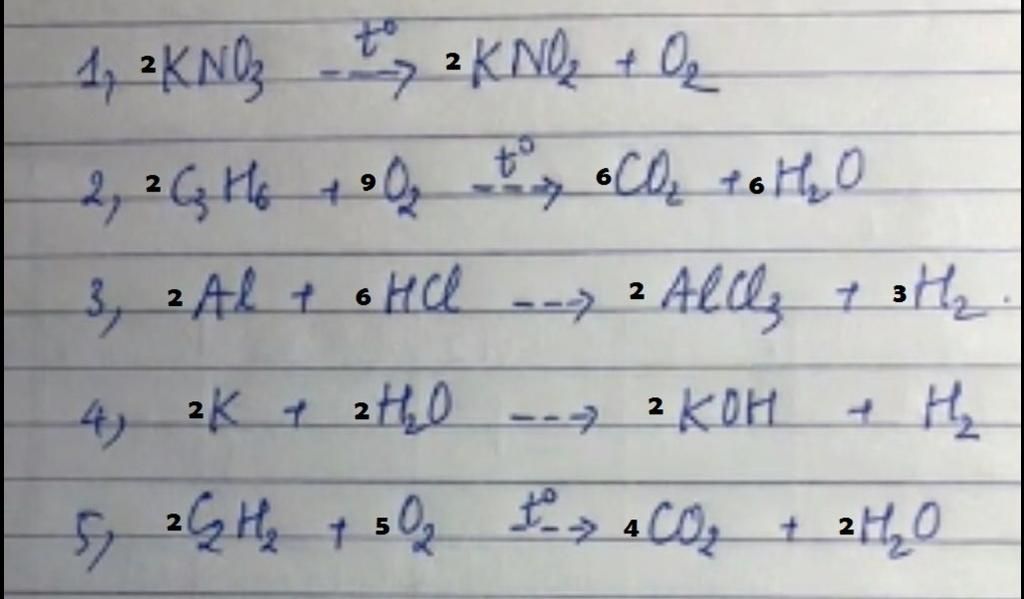 1, 2KNO3 t° ---> 2KNO2 + O2
2, 2C3H6 + 9O2 t° ---> 6CO2 + 6H2O
3, 2Al + 6HCl ---> 2AlCl3 + 3H2.
4, 2K + 2H2O ---> 2KOH + H2
5, 2C2H2 + 5O2 t° --> 4CO2 + 2H2O